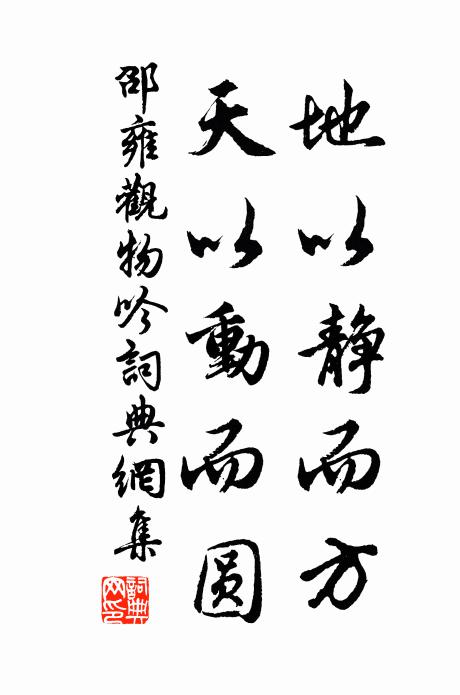 地以静而方
天以動而圆
邵雍觀物吟詞典網集
詞典
网印